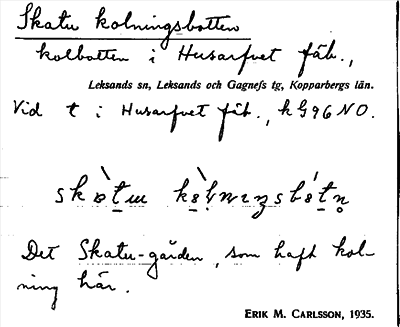 Skatu kolningsbotten
kolbotten i Husarfvet fäb.,
Leksands sn, Leksands och Gagnefs tg, Kopparbergs län.
Vid t i Husarfvet fäb., k G96 NO.
Det Skatu-gården, som haft kol-
ning här.
ERIK M. CARLSSON, 1935.